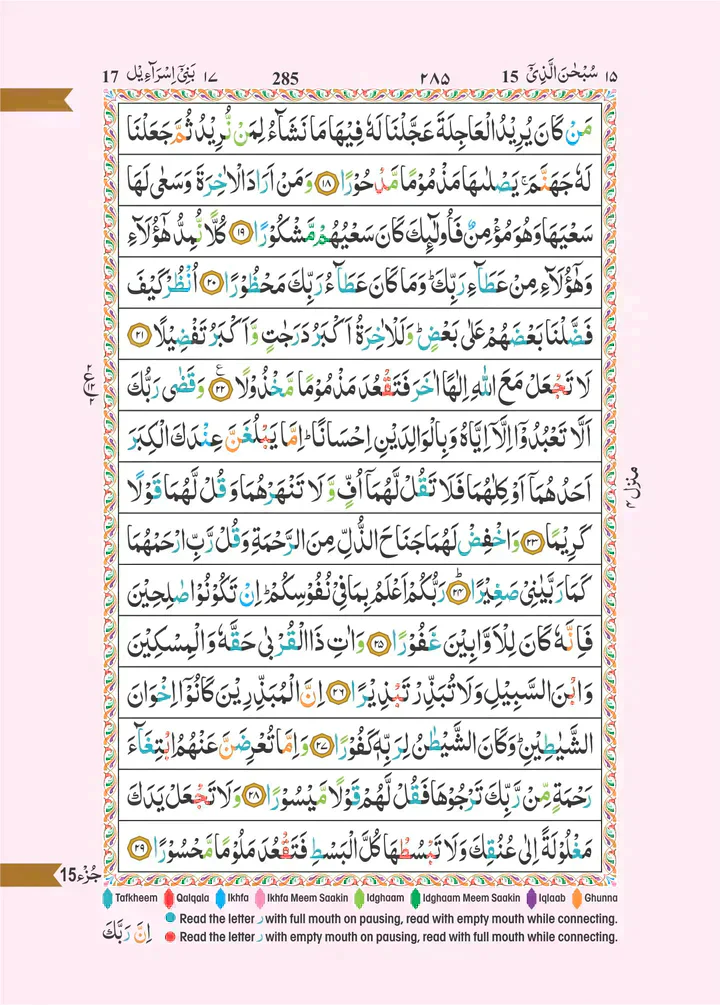 ١٥ سُبْحٰنَ الَّذِیْۤ 15 ٢٨٥ 285 ١٧ بَنِیْۤ اِسْرَآءِیْل 17
مَنْ كَانَ یُرِیْدُ الْعَاجِلَةَ عَجَّلْنَا لَهٗ فِیْهَا مَا نَشَآءُ لِمَنْ نُّرِیْدُ ثُمَّ جَعَلْنَا
لَهٗ جَهَنَّمَ ۚ یَصْلٰىهَا مَذْمُوْمًا مَّدْحُوْرًا ﴿١٨﴾ وَ مَنْ اَرَادَ الْاٰخِرَةَ وَ سَعٰى لَهَا
سَعْیَهَا وَ هُوَ مُؤْمِنٌ فَاُولٰٓىِٕكَ كَانَ سَعْیُهُمْ مَّشْكُوْرًا ﴿١٩﴾ كُلًّا نُّمِدُّ هٰۤؤُلَآءِ
وَ هٰۤؤُلَآءِ مِنْ عَطَآءِ رَبِّكَ ؕ وَ مَا كَانَ عَطَآءُ رَبِّكَ مَحْظُوْرًا ﴿٢٠﴾ اُنْظُرْ كَیْفَ
فَضَّلْنَا بَعْضَهُمْ عَلٰى بَعْضٍ ؕ وَ لَلْاٰخِرَةُ اَكْبَرُ دَرَجٰتٍ وَّ اَكْبَرُ تَفْضِیْلًا ﴿٢١﴾
لَا تَجْعَلْ مَعَ اللّٰهِ اِلٰهًا اٰخَرَ فَتَقْعُدَ مَذْمُوْمًا مَّخْذُوْلًا ﴿٢٢﴾ وَ قَضٰى رَبُّكَ
اَلَّا تَعْبُدُوْۤا اِلَّاۤ اِیَّاهُ وَ بِالْوَالِدَیْنِ اِحْسَانًا ؕ اِمَّا یَبْلُغَنَّ عِنْدَكَ الْكِبَرَ
اَحَدُهُمَاۤ اَوْ كِلٰهُمَا فَلَا تَقُلْ لَّهُمَاۤ اُفٍّ وَّ لَا تَنْهَرْهُمَا وَ قُلْ لَّهُمَا قَوْلًا
كَرِیْمًا ﴿٢٣﴾ وَ اخْفِضْ لَهُمَا جَنَاحَ الذُّلِّ مِنَ الرَّحْمَةِ وَ قُلْ رَّبِّ ارْحَمْهُمَا
كَمَا رَبَّیٰنِیْ صَغِیْرًا ﴿٢٤﴾ؕ رَبُّكُمْ اَعْلَمُ بِمَا فِیْ نُفُوْسِكُمْ ؕ اِنْ تَكُوْنُوْا صٰلِحِیْنَ
فَاِنَّهٗ كَانَ لِلْاَوَّابِیْنَ غَفُوْرًا ﴿٢٥﴾ وَ اٰتِ ذَا الْقُرْبٰى حَقَّهٗ وَ الْمِسْكِیْنَ
وَ ابْنَ السَّبِیْلِ وَ لَا تُبَذِّرْ تَبْذِیْرًا ﴿٢٦﴾ اِنَّ الْمُبَذِّرِیْنَ كَانُوْۤا اِخْوَانَ
الشَّیٰطِیْنِ ؕ وَ كَانَ الشَّیْطٰنُ لِرَبِّهٖ كَفُوْرًا ﴿٢٧﴾ وَ اِمَّا تُعْرِضَنَّ عَنْهُمُ ابْتِغَآءَ
رَحْمَةٍ مِّنْ رَّبِّكَ تَرْجُوْهَا فَقُلْ لَّهُمْ قَوْلًا مَّیْسُوْرًا ﴿٢٨﴾ وَ لَا تَجْعَلْ یَدَكَ
مَغْلُوْلَةً اِلٰى عُنُقِكَ وَ لَا تَبْسُطْهَا كُلَّ الْبَسْطِ فَتَقْعُدَ مَلُوْمًا مَّحْسُوْرًا ﴿٢٩﴾
٢ ع ١٢ ٢
منزل ٤
جُزْء 15
Tafkheem Qalqala Ikhfa Ikhfa Meem Saakin Idghaam Idghaam Meem Saakin Iqlaab Ghunna
Read the letter ر with full mouth on pausing, read with empty mouth while connecting.
Read the letter ر with empty mouth on pausing, read with full mouth while connecting.
اِنَّ رَبَّكَ